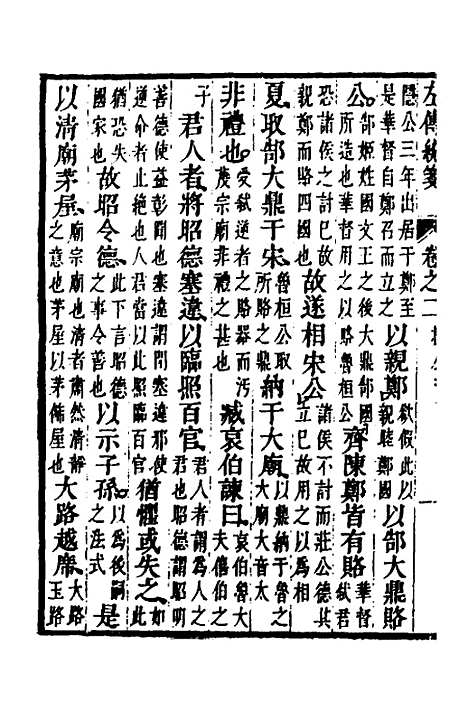 左傳統箋 卷之二 一
隱公三年出居于鄭至是華督自鄭召而立之以親鄭欲假此以親睦鄭國以郜大鼎賂
公郜姬姓國文王之後大鼎郜國所造也華督用之以賂魯桓公齊陳鄭皆有賂華督弒君
恐諸侯之討己故親鄭而賂四國也故遂相宋公諸侯不討而莊公德其立己故用之以為相
夏取郜大鼎于宋魯桓公取所賂之鼎納于大廟以鼎納于魯之大廟大音太
非禮也受弒逆者之賂器而污慶宗廟非禮之甚也臧哀伯諫曰哀伯魯大夫僖伯之
子君人者將昭德塞違以臨照百官君人者謂為人之君也昭德謂昭明
善德使益彰聞也塞違謂閉塞違邪使逆命者止絕也人君當以此照臨百官猶懼或失之如此
猶恐失國家也故昭令德此下言昭德之事令善也以示子孫以為後嗣之法式是
以清廟茅屋廟宗廟也清者肅然清靜之意也茅屋以茅飾屋也大路越席大路玉路